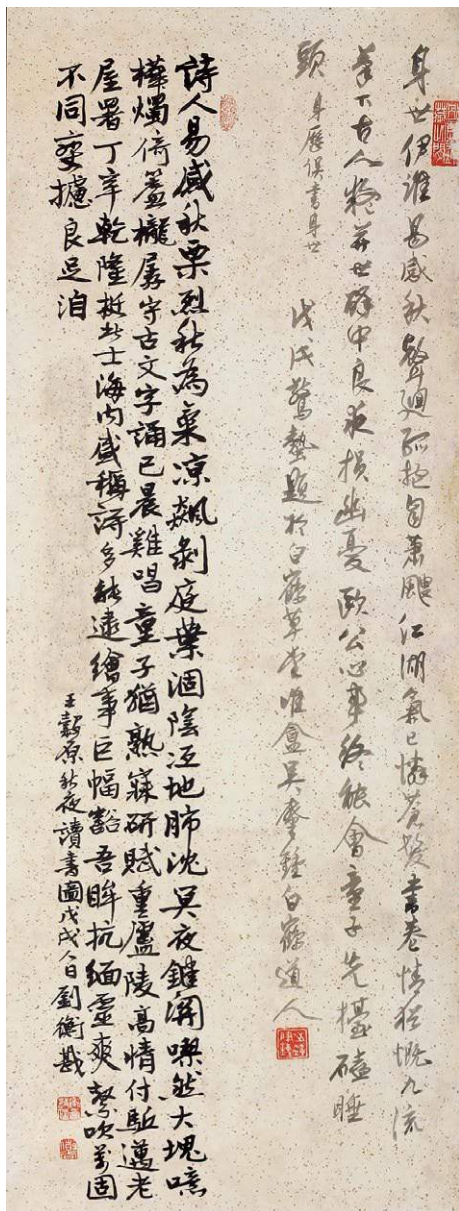 身世伊誰易感秋聲迴孤抱自蕭颼江湖氣已憐蒼鬢書卷情猶慨九流
筆下古人難並世醉中良夜損幽憂歐公心事終能會童子先擡磕睡
頭 身世俱書
戊戌驚蟄題於白鶴草堂唯盦吳白鶴道人
詩人易感秋栗烈秋為氣涼飆剝庭葉涸陰沍地肺沈冥夜鍵闢喫然大塊噫
樺燭倚蓋櫳孱守古文字誦已晨雞唱童子猶熟寐研賦重廬陵高情付邁老
屋署丁辛乾隆挺此士海內盛稱詩多能逮繪事巨幅豁吾眸抗緬靈爽繄吹萬固
不同變攄良足洎
王穀原秋夜讀書圖戊戌人日劉衡戡